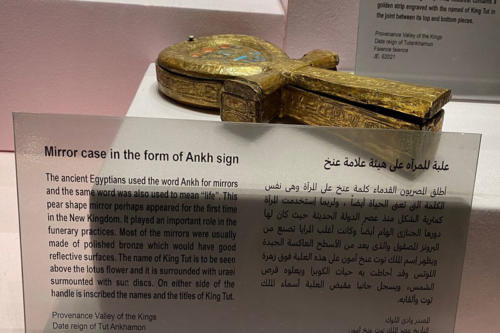 golden strip engraved with the named of King Tut in
the joint between its top and bottom pieces.
Provenance Valley of the Kings
Date reign of Tutankhamon
Faience faience
JE. 62021
Mirror case in the form of Ankh sign
The ancient Egyptians used the word Ankh for mirrors
and the same word was also used to mean “life”. This
pear shape mirror perhaps appeared for the first time
in the New Kingdom. It played an important role in the
funerary practices. Most of the mirrors were usually
made of polished bronze which would have good
reflective surfaces. The name of King Tut is to be seen
above the lotus flower and it is surrounded with uraei
surmounted with sun discs. On either side of the
handle is inscribed the names and the titles of King Tut.
Provenance Valley of the Kings
Date reign of Tut Ankhamon
علبة للمرآه على هيئة علامة عنخ
أطلق المصريون القدماء كلمة عنخ على المرآة وهى نفس
الكلمة التى تعنى الحياة أيضاً ، ولربما إستخدمت المرآة
كمثرية الشكل منذ عصر الدولة الحديثة حيث كان لها
دورها الجنازى الهام أيضاً وكانت أغلب المرايا تصنع من
البرونز المصقول والذى يعد من الأسطح العاكسة الجيدة
ويظهر إسم الملك توت عنخ آمون على هذه العلبة فوق زهرة
اللوتس وقد أحاطت به حيات الكوبرا ويعلوه قرص
الشمس، ويسجل جانبا مقبض العلبة أسماء الملك
توت وألقابه.
المصدر وادى الملوك